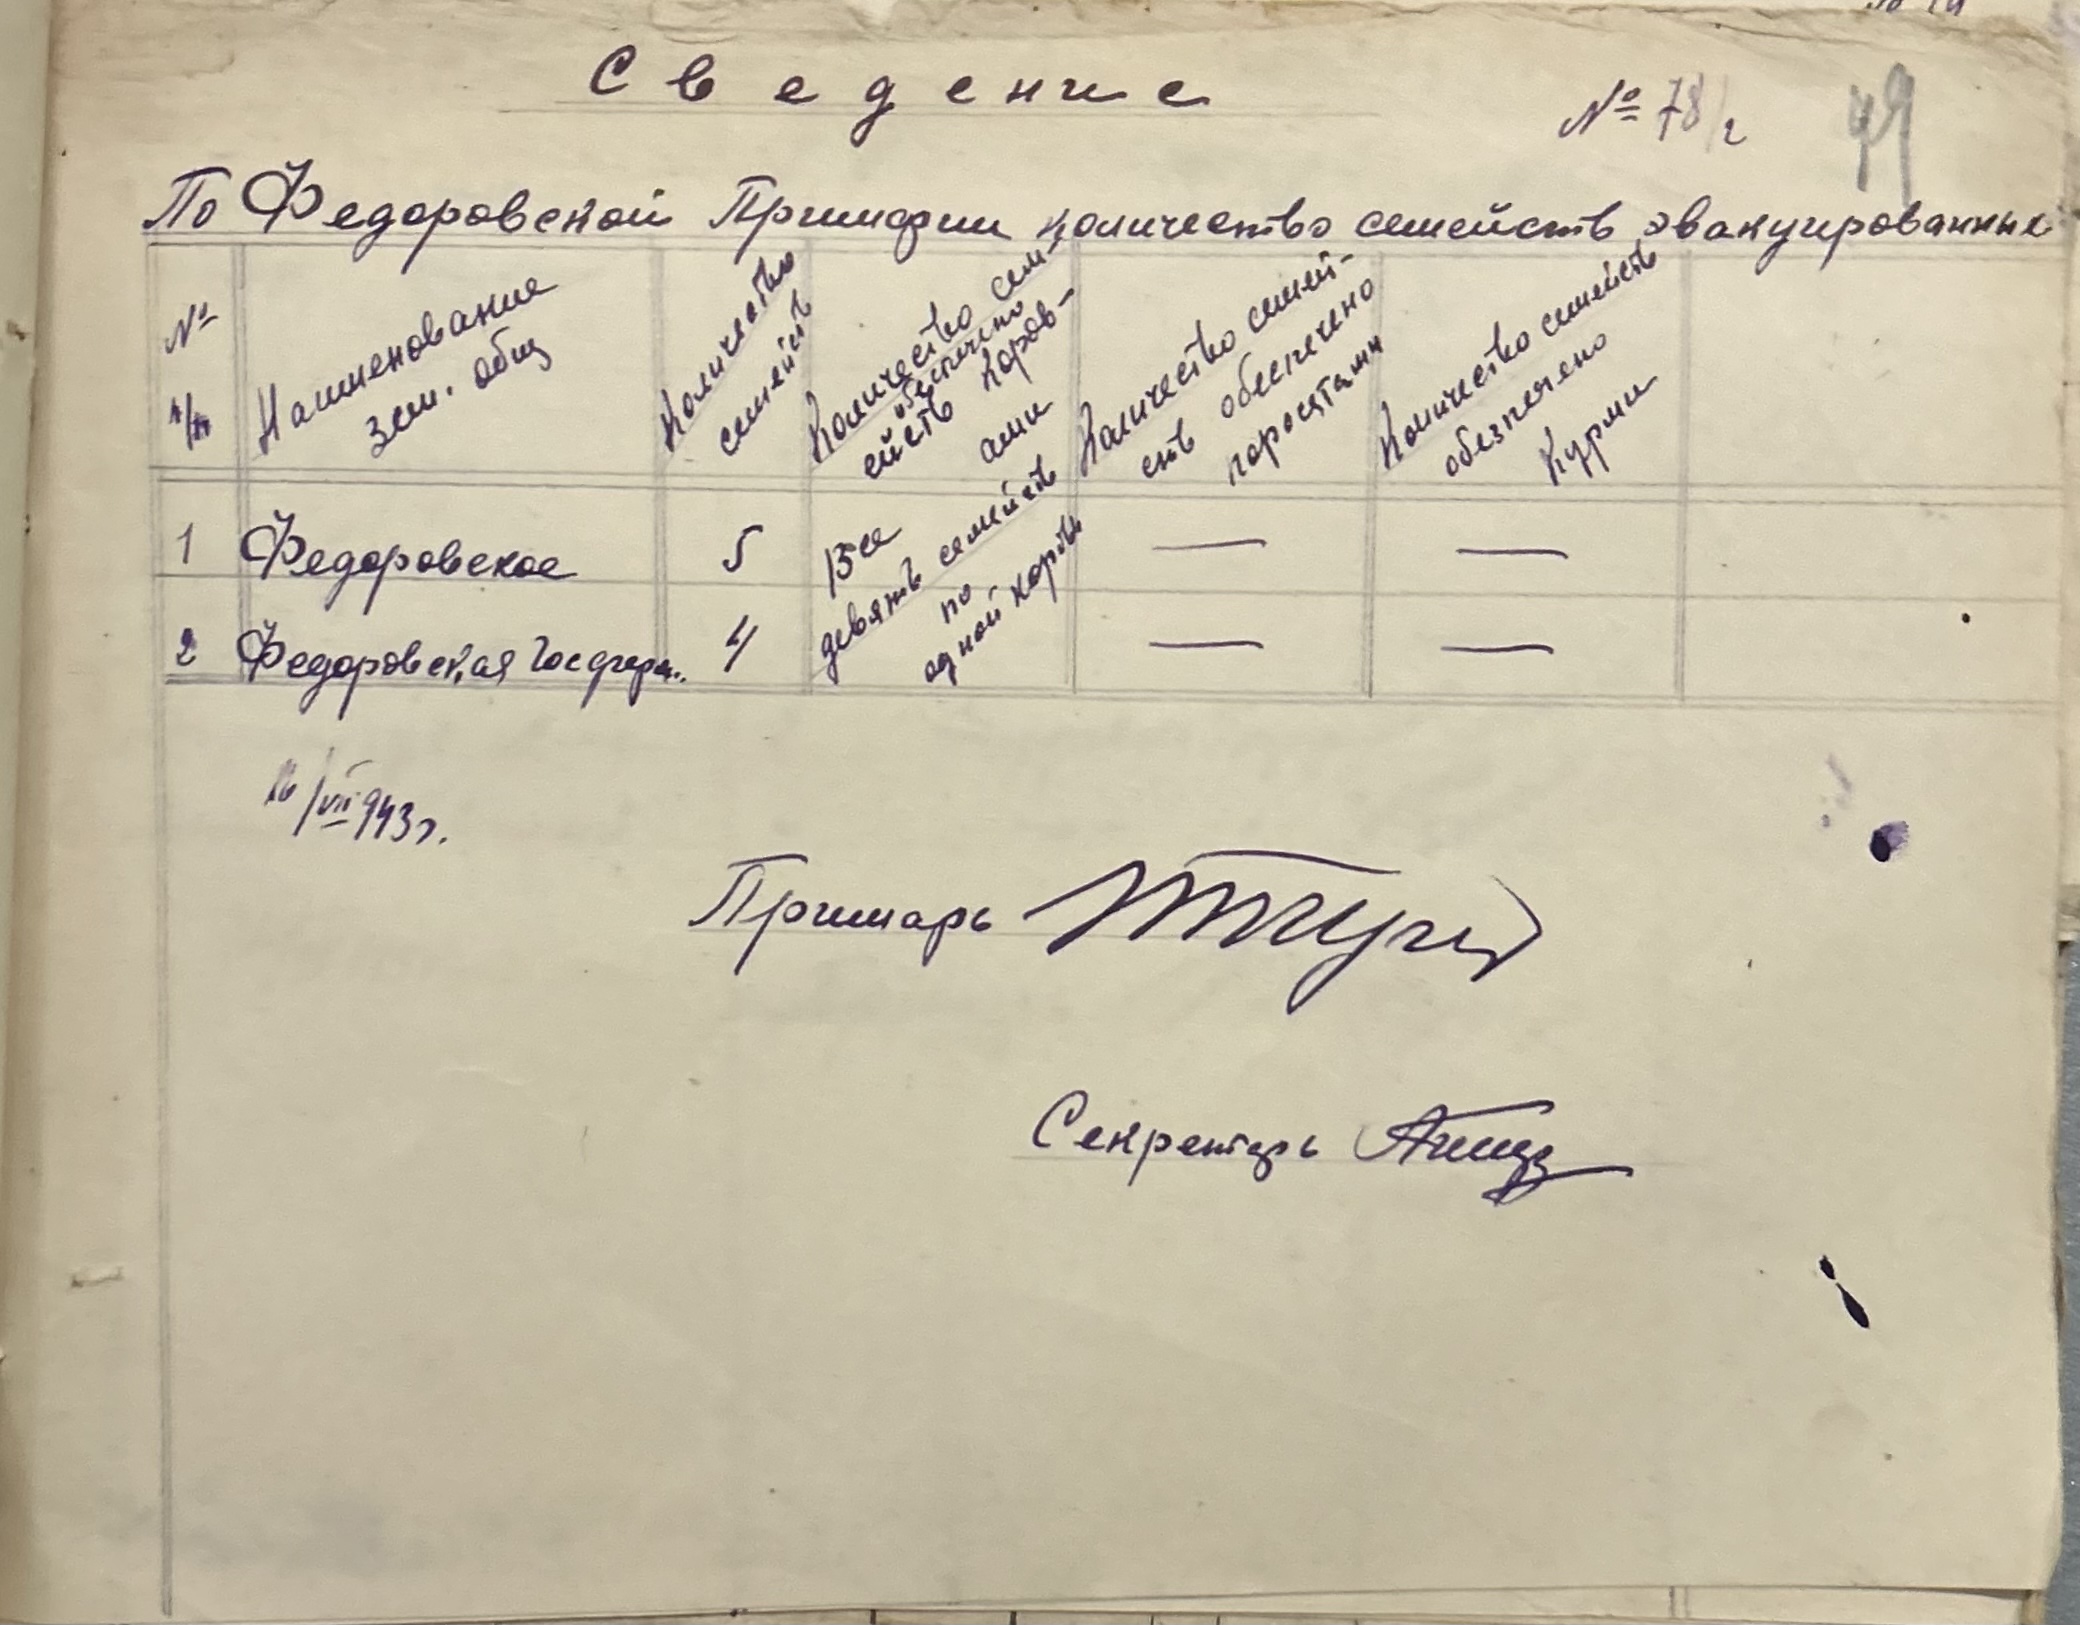 Сведение
№ 78/2
49
По Федоровской Примарии количество семейств эвакуированных
№ п/п
Наименование
зем. общ
Количество
семейств
Количество сем-
обеспечено
ейств коров-
ами
Количество семей-
ств обеспечено
поросятами
Количество семейств
обезпечено
курми
1 Федоровское 5 — —
Все
девять семейств
по
одной корове
2 Федоровская Госферм.. 4 — —
16/VII 943 г.
Примарь
Секретарь